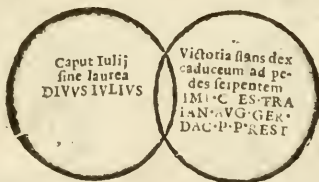 Caput Iulij
sine laurea
DIVVS IVLIVS
Victoria stans dex
caduceum ad pe-
des serpentem
IMP·C ES·TRA
IAN·AVG·GER·
DAC·P·P·REST